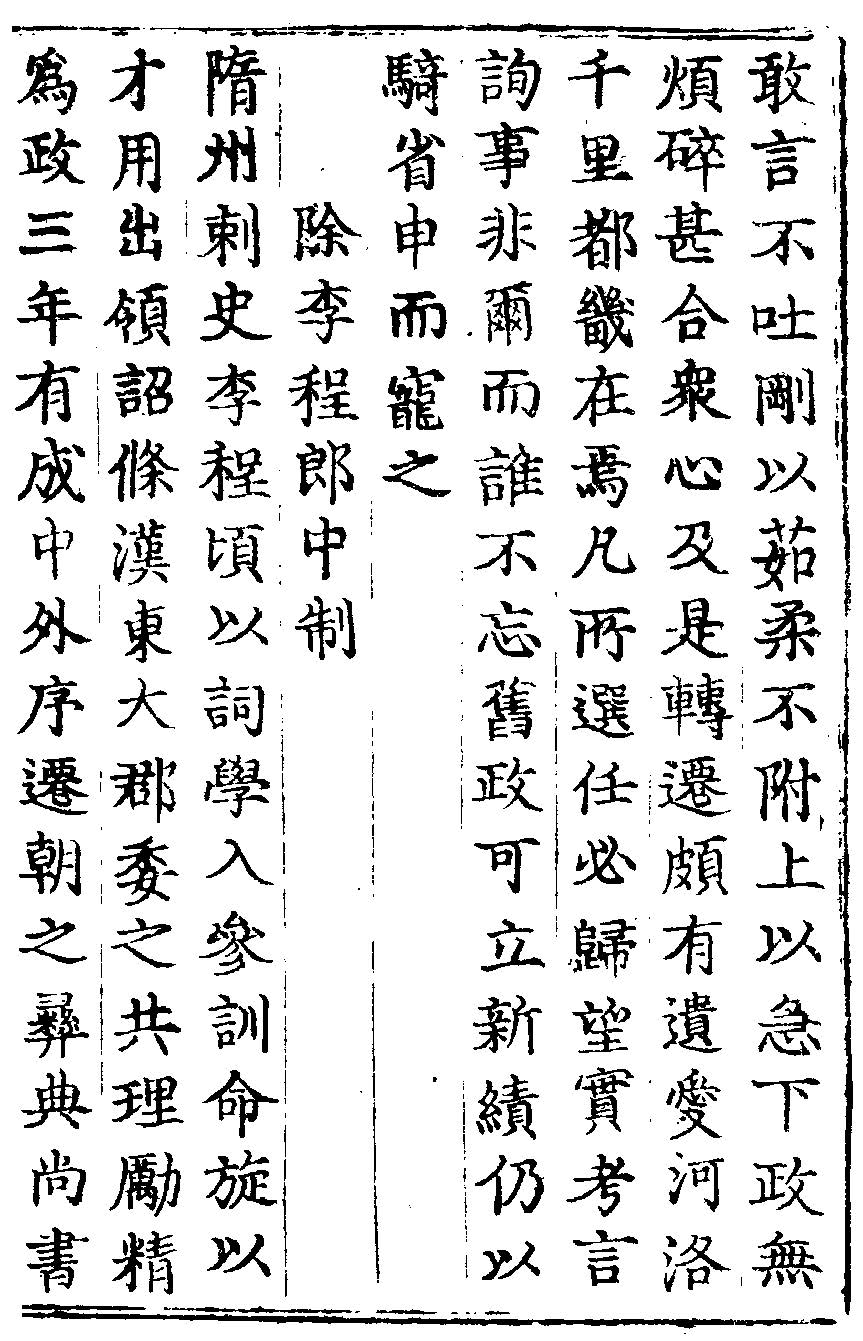 敢言不吐剛以茹柔不附上以急下政無
煩碎甚合衆心及是轉遷頗有遺愛河洛
千里都畿在焉凡所選任必歸望實考言
詢事非爾而誰不忘舊政可立新績仍以
騎省申而寵之
除李程郎中制
隋州刺史李程頃以詞學入參訓命旋以
才用出領詔條漢東大郡委之共理勵精
爲政三年有成中外序遷朝之彛典尚書